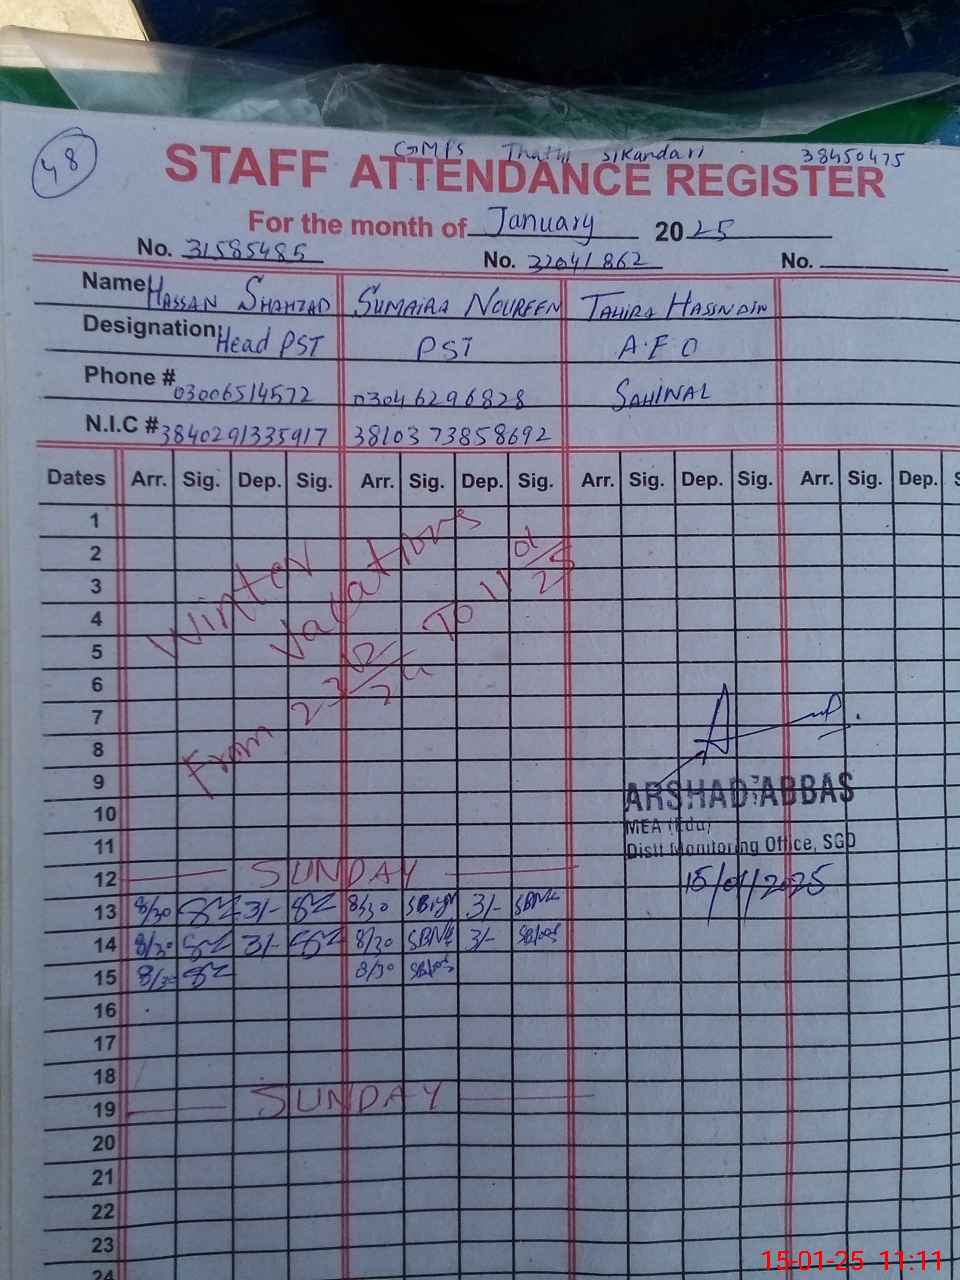 48
GMPS Thathi Sikandari 38450475
STAFF ATTENDANCE REGISTER
For the month of January 2025
No. 31585485 No. 32041862 No.
Name: HASSAN SHAHZAD SUMAIRA NOUREEN TAHIRA HASSNAIN
Designation: Head PST PST A.E.O
Phone # 03006514572 03046296828 SAHIWAL
N.I.C # 3840291335917 3810373858692
Dates Arr. Sig. Dep. Sig. Arr. Sig. Dep. Sig. Arr. Sig. Dep. Sig. Arr. Sig. Dep. S
1
2
3
4
5
6
7
8
9
10
11
Winter Vacations
From 23 12/24 To 11 01/25
ARSHAD ABBAS
MEA (Edu)
Distt Monitoring Office, SGD
15/01/2025
12 SUNDAY
13 8/30 3/- 8/30 3/-
14 8/30 3/- 8/30 3/-
15 8/30 8/30
16
17
18
19 SUNDAY
20
21
22
23
24
15-01-25 11:11